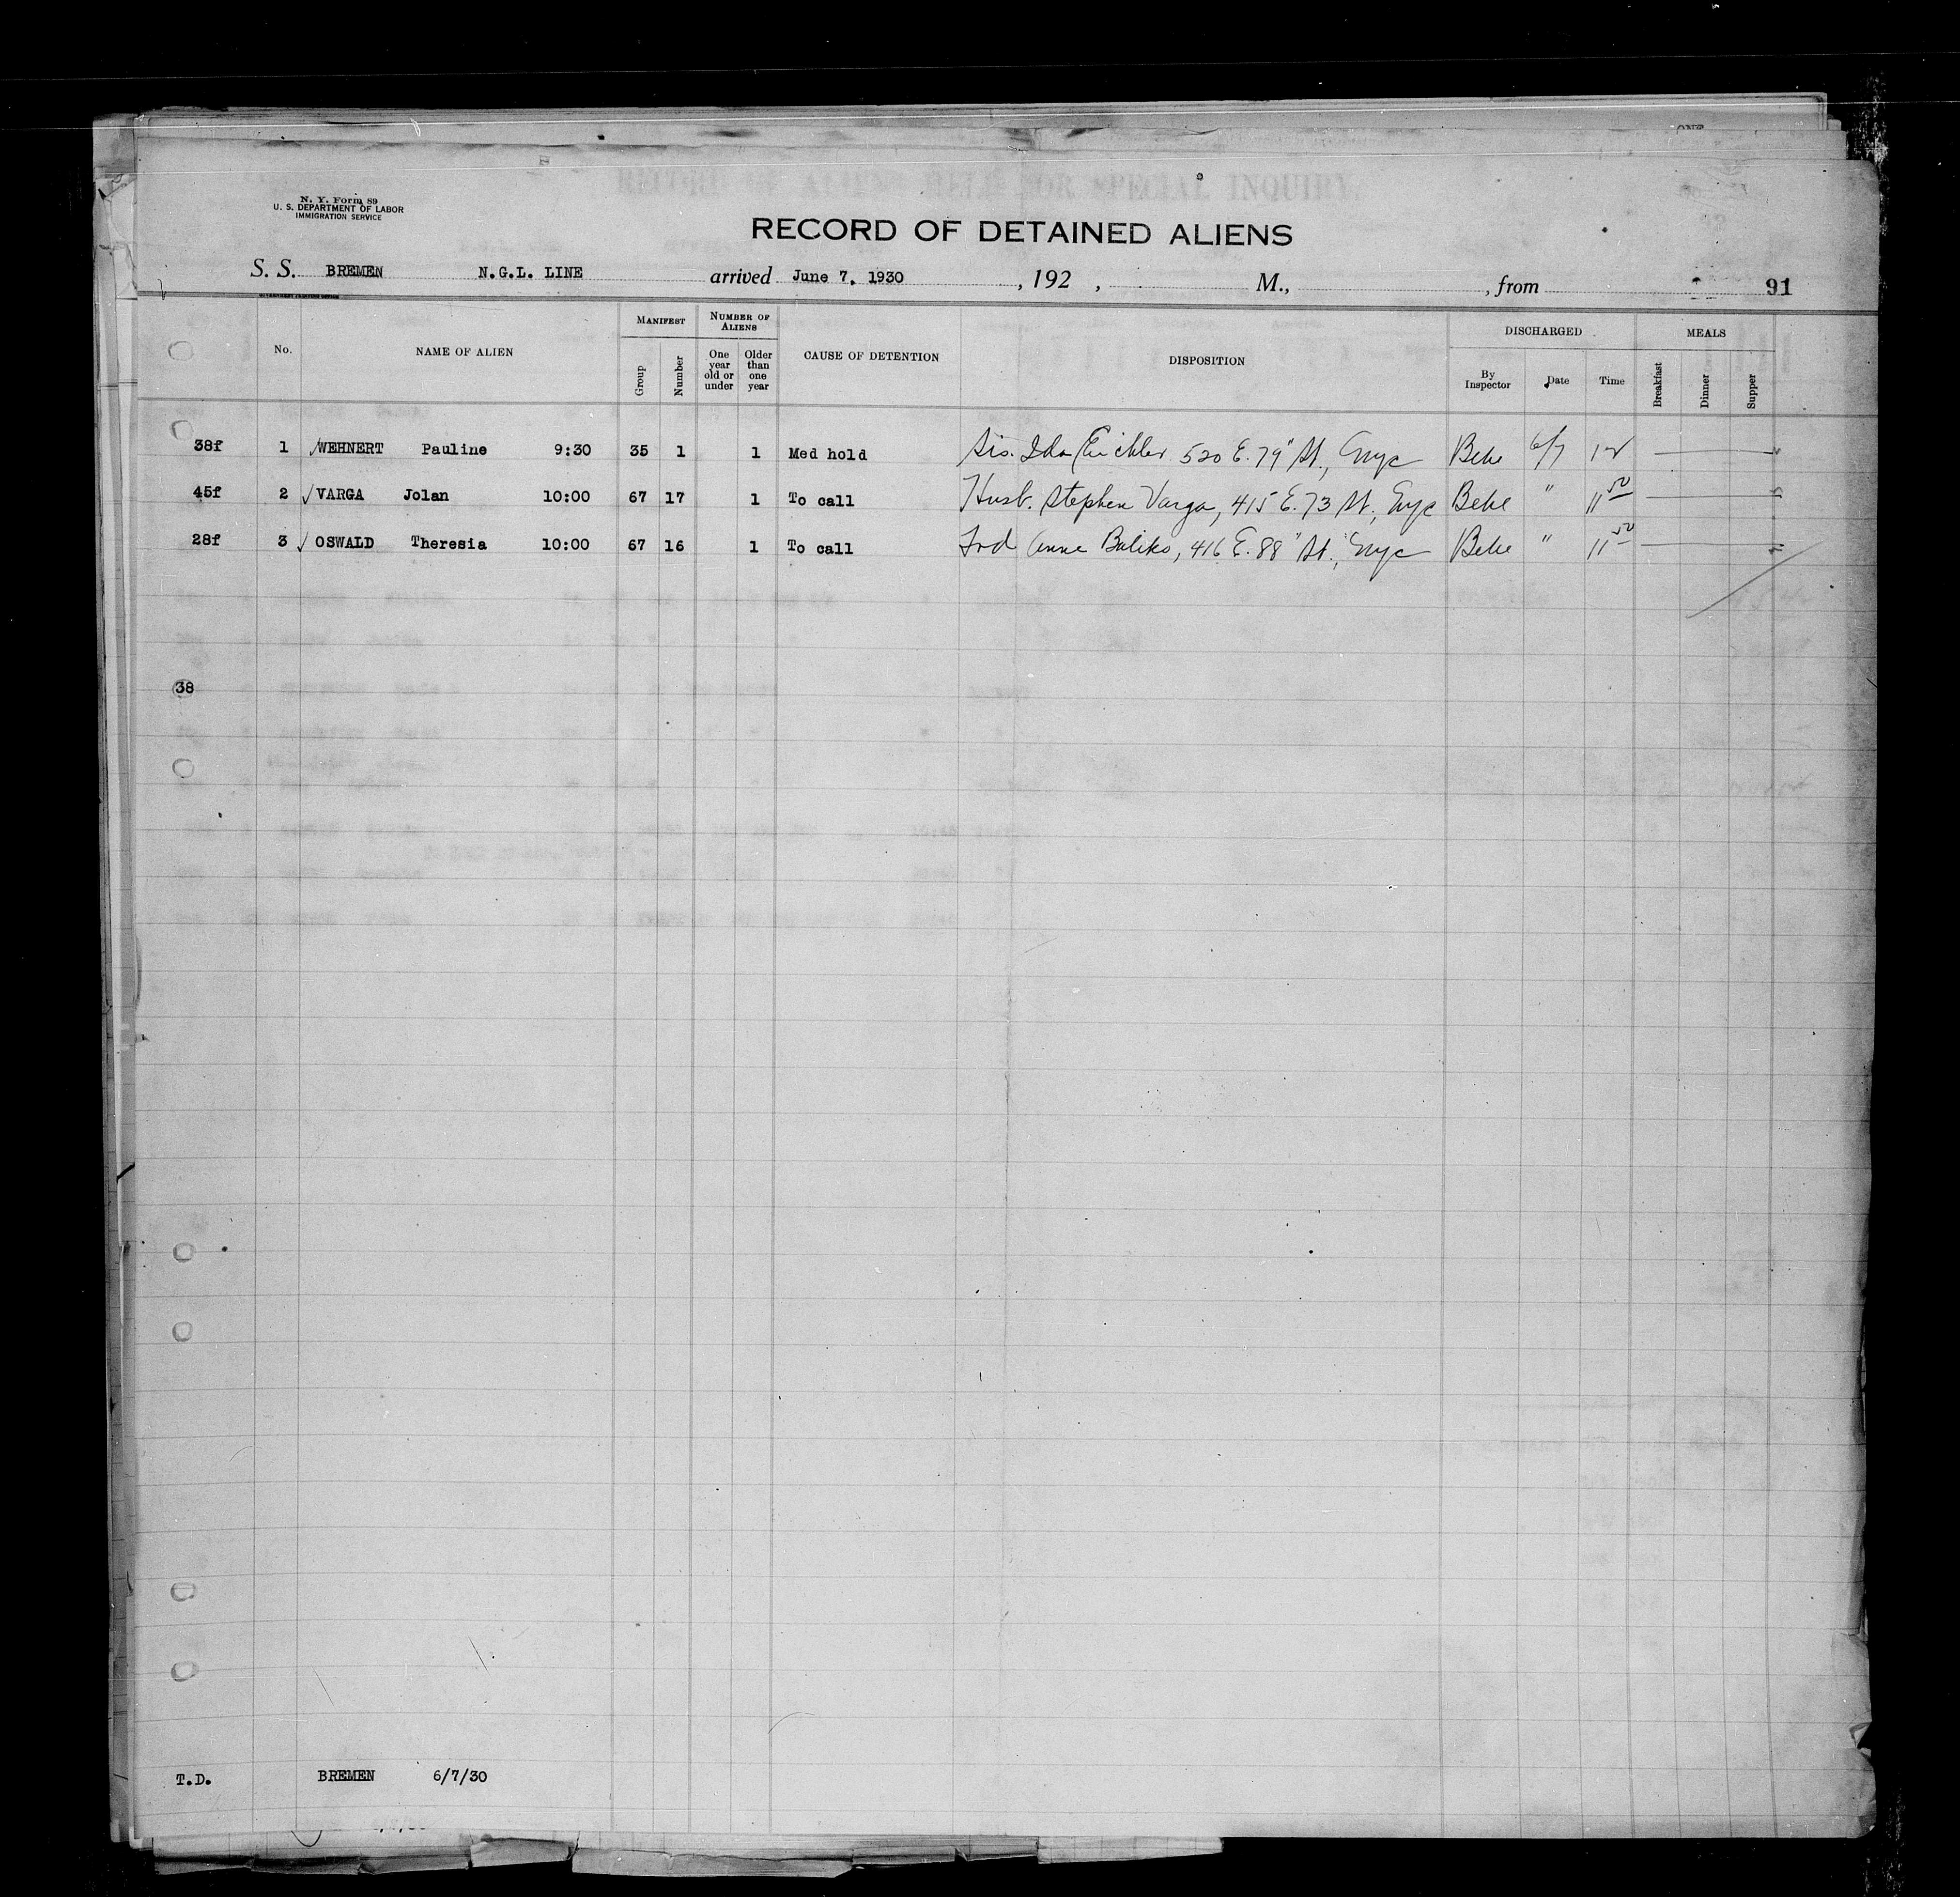 N. Y. Form 89
U. S. DEPARTMENT OF LABOR
IMMIGRATION SERVICE
RECORD OF DETAINED ALIENS
S. S. BREMEN N.G.L. LINE arrived June 7, 1930 , 192 , M., from 91
No. NAME OF ALIEN MANIFEST Group Number NUMBER OF ALIENS One year old or under Older than one year CAUSE OF DETENTION DISPOSITION DISCHARGED By Inspector Date Time MEALS Breakfast Dinner Supper
38f 1 WEHNERT Pauline 9:30 35 1 1 Med hold Sis. Ida Eichler 520 E. 79" St., Nyc 6/7 12
45f 2 VARGA Jolan 10:00 67 17 1 To call Husb. Stephen Varga, 415 E. 73 St., Nyc " 11 50
28f 3 OSWALD Theresia 10:00 67 16 1 To call Frd Anna Baliko, 416 E. 88" St., Nyc " 11 50
38
T.D. BREMEN 6/7/30